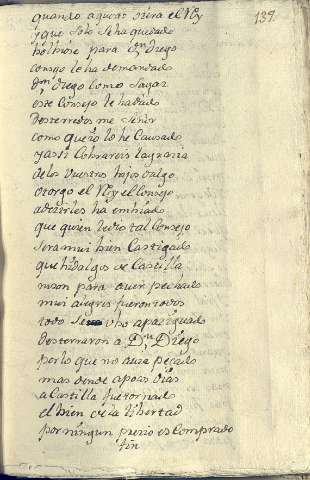 139.
quando aquesto oiera el Rey
y que solo se ha quedado
bolbiose para Dn. Diego
consejo le ha demandado
Dn. Diego como sagaz
este Consejo le ha dado
Desterredes me Señor
como que yo lo he Causado
y assi Cobrareis la gracia
de los vuestros hijos dalgo
otorgo el Rey el Consejo
a decirles ha embiado
que quien le dio tal Consejo
sera mui bien Castigado
que hidalgos de Castilla
no son para aver pechado
mui alegres fueron todos
todo se ubo apaziguado
Desterraron a Dn. Diego
por lo que no avia pecado
mas dende a pocos dias
a Castilla fue tornado
el bien de la libertad
por ningun precio es Comprado
fin